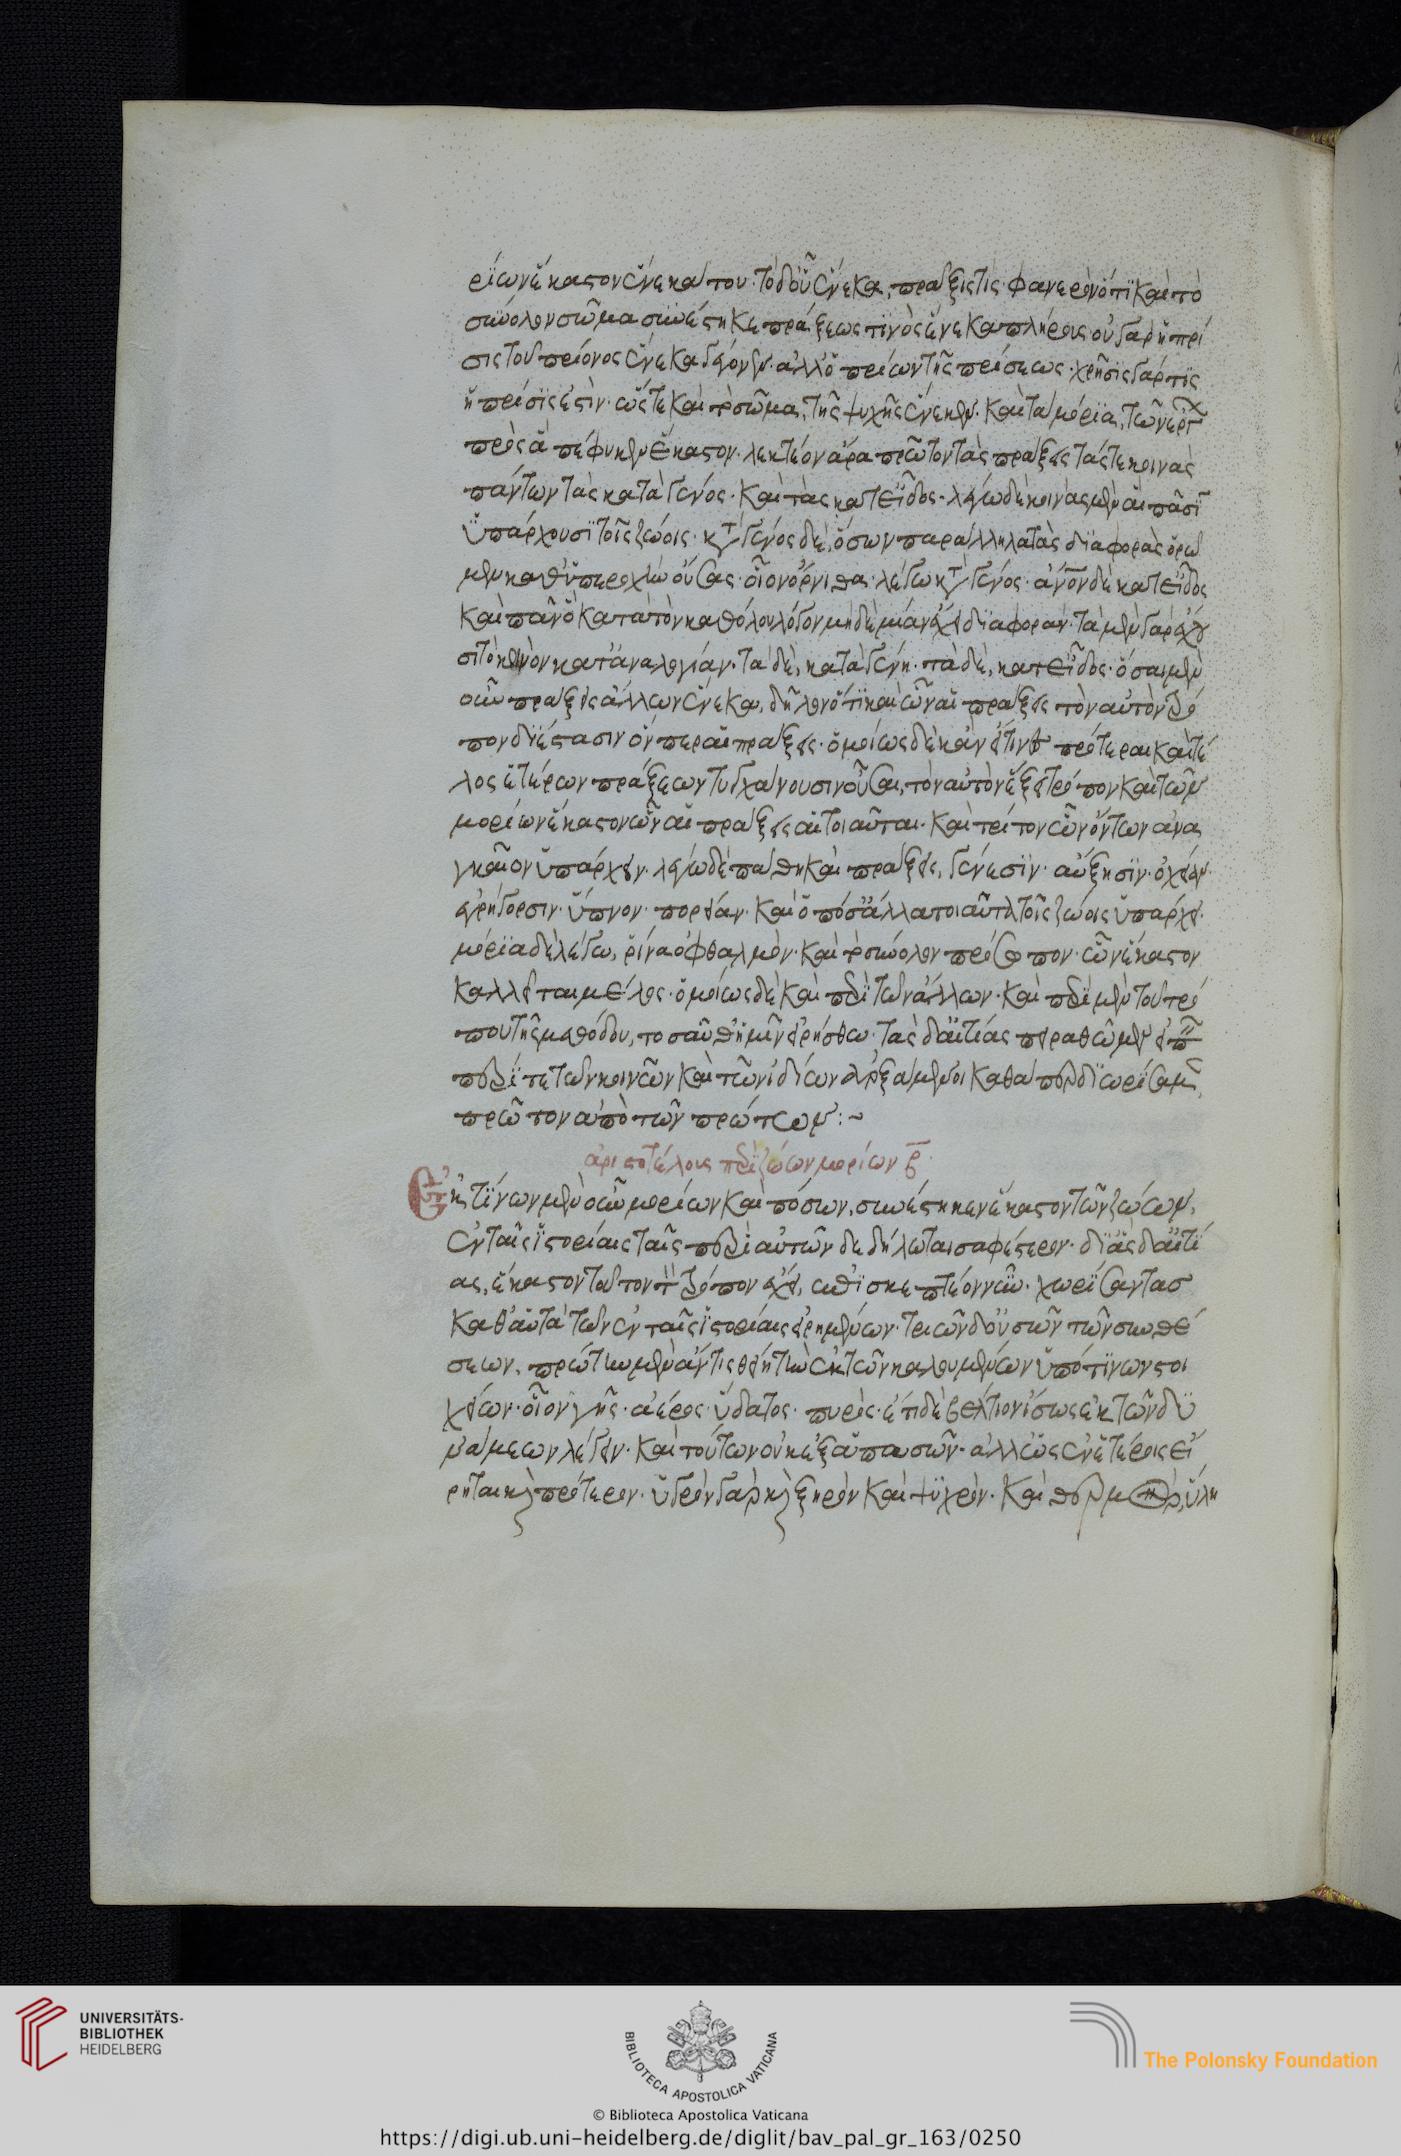 ρίων ἕκαστον ἕνεκά του· τὸ δ' οὗ ἕνεκα, πρᾶξίς τις· φανερὸν ὅτι καὶ τὸ
σύνολον σῶμα συνέστηκε πράξεως τινὸς ἕνεκα πλήρους· οὐ γὰρ ἡ πρί
σις τοῦ πρίονος ἕνεκα γέγονεν· ἀλλ' ὁ πρίων τῆς πρίσεως· χρῆσις γάρ τις
ἡ πρίσις ἐστίν· ὥστε καὶ τὸ σῶμα, τῆς ψυχῆς ἕνεκεν· καὶ τὰ μόρια, τῶν ἔργων
πρὸς ἃ πέφυκεν ἕκαστον· λεκτέον ἄρα πρῶτον τὰς πράξεις τάς τε κοινὰς
πάντων τὰς κατὰ γένος· καὶ τὰς κατ' εἶδος· λέγω δὲ κοινὰς μὲν αἳ πᾶσιν
ὑπάρχουσι τοῖς ζώοις· κατὰ γένος δὲ, ὅσων παράλληλα τὰς διαφορὰς ὁρῶ
μεν καθ' ὑπεροχὴν οὔσας· οἷον ὄρνιθας λέγω κατὰ γένος· ἄνθρωπον δὲ κατ' εἶδος
καὶ πᾶν ὃ κατὰ τὸν καθόλου λόγον μηδεμίαν ἔχει διαφοράν· τὰ μὲν γὰρ ἔχου
σι τὸ κοινὸν κατ' ἀναλογίαν· τὰ δὲ, κατὰ γένη· τὰ δὲ, κατ' εἶδος· ὅσαι μὲν
οὖν πράξεις ἄλλων ἕνεκα, δῆλον ὅτι καὶ ὧν αἱ πράξεις τὸν αὐτὸν τρό
πον διεστᾶσιν ὅνπερ αἱ πράξεις· ὁμοίως δὲ κἂν εἴ τινες πρότεραι καὶ τέ
λος ἑτέρων πράξεων τυγχάνουσιν οὖσαι, τὸν αὐτὸν ἕξει τρόπον καὶ τῶν
μορίων ἕκαστον ὧν αἱ πράξεις αἱ τοιαῦται· καὶ τρίτον ὧν ὄντων ἀνα
γκαῖον ὑπάρχειν· λέγω δὲ πάθη καὶ πράξεις, γένεσιν· αὔξησιν· ὀχείαν·
ἐγρήγορσιν· ὕπνον· πορείαν· καὶ ὁπόσ' ἄλλα τοιαῦτα τοῖς ζώοις ὑπάρχει·
μόρια δὲ λέγω, ῥῖνα ὀφθαλμὸν· καὶ τὸ σύνολον πρόσωπον· ὧν ἕκαστον
καλεῖται μέλος· ὁμοίως δὲ καὶ περὶ τῶν ἄλλων· καὶ περὶ μὲν τοῦ τρό
που τῆς μεθόδου, τοσαῦθ' ἡμῖν εἰρήσθω· τὰς δ' αἰτίας πειραθῶμεν εἰπεῖν
περί τε τῶν κοινῶν καὶ τῶν ἰδίων ἀρξάμενοι καθάπερ διωρίσαμεν
πρῶτον ἀπὸ τῶν πρώτων:~
ἀριστοτέλους περὶ ζώων μορίων β̅
Ἐκ τίνων μὲν οὖν μορίων καὶ πόσων, συνέστηκεν ἕκαστον τῶν ζώων,
ἐν ταῖς ἱστορίαις ταῖς περὶ αὐτῶν δεδήλωται σαφέστερον· δι' ἃς δ' αἰτί
ας, ἕκαστον τοῦτον τὸν τρόπον ἔχει, ἐπισκεπτέον νῦν· χωρίσαντας
καθ' αὑτὰ τῶν ἐν ταῖς ἱστορίαις εἰρημένων· τριῶν δ' οὐσῶν τῶν συνθέ
σεων, πρώτην μὲν ἄν τις θείη τὴν ἐκ τῶν καλουμένων ὑπό τινων στοι
χείων· οἷον γῆς· ἀέρος· ὕδατος· πυρὸς· ἔτι δὲ βέλτιον ἴσως ἐκ τῶν δυ
νάμεων λέγειν· καὶ τούτων οὐκ ἐξ ἁπασῶν· ἀλλ' ὡς ἐν ἑτέροις εἴ
ρηται καὶ πρότερον· ὑγρὸν γὰρ καὶ ξηρὸν καὶ ψυχρόν· καὶ θερμὸν, ὕλη
UNIVERSITÄTS-
BIBLIOTHEK
HEIDELBERG
BIBLIOTECA APOSTOLICA VATICANA
The Polonsky Foundation
© Biblioteca Apostolica Vaticana
https://digi.ub.uni-heidelberg.de/diglit/bav_pal_gr_163/0250